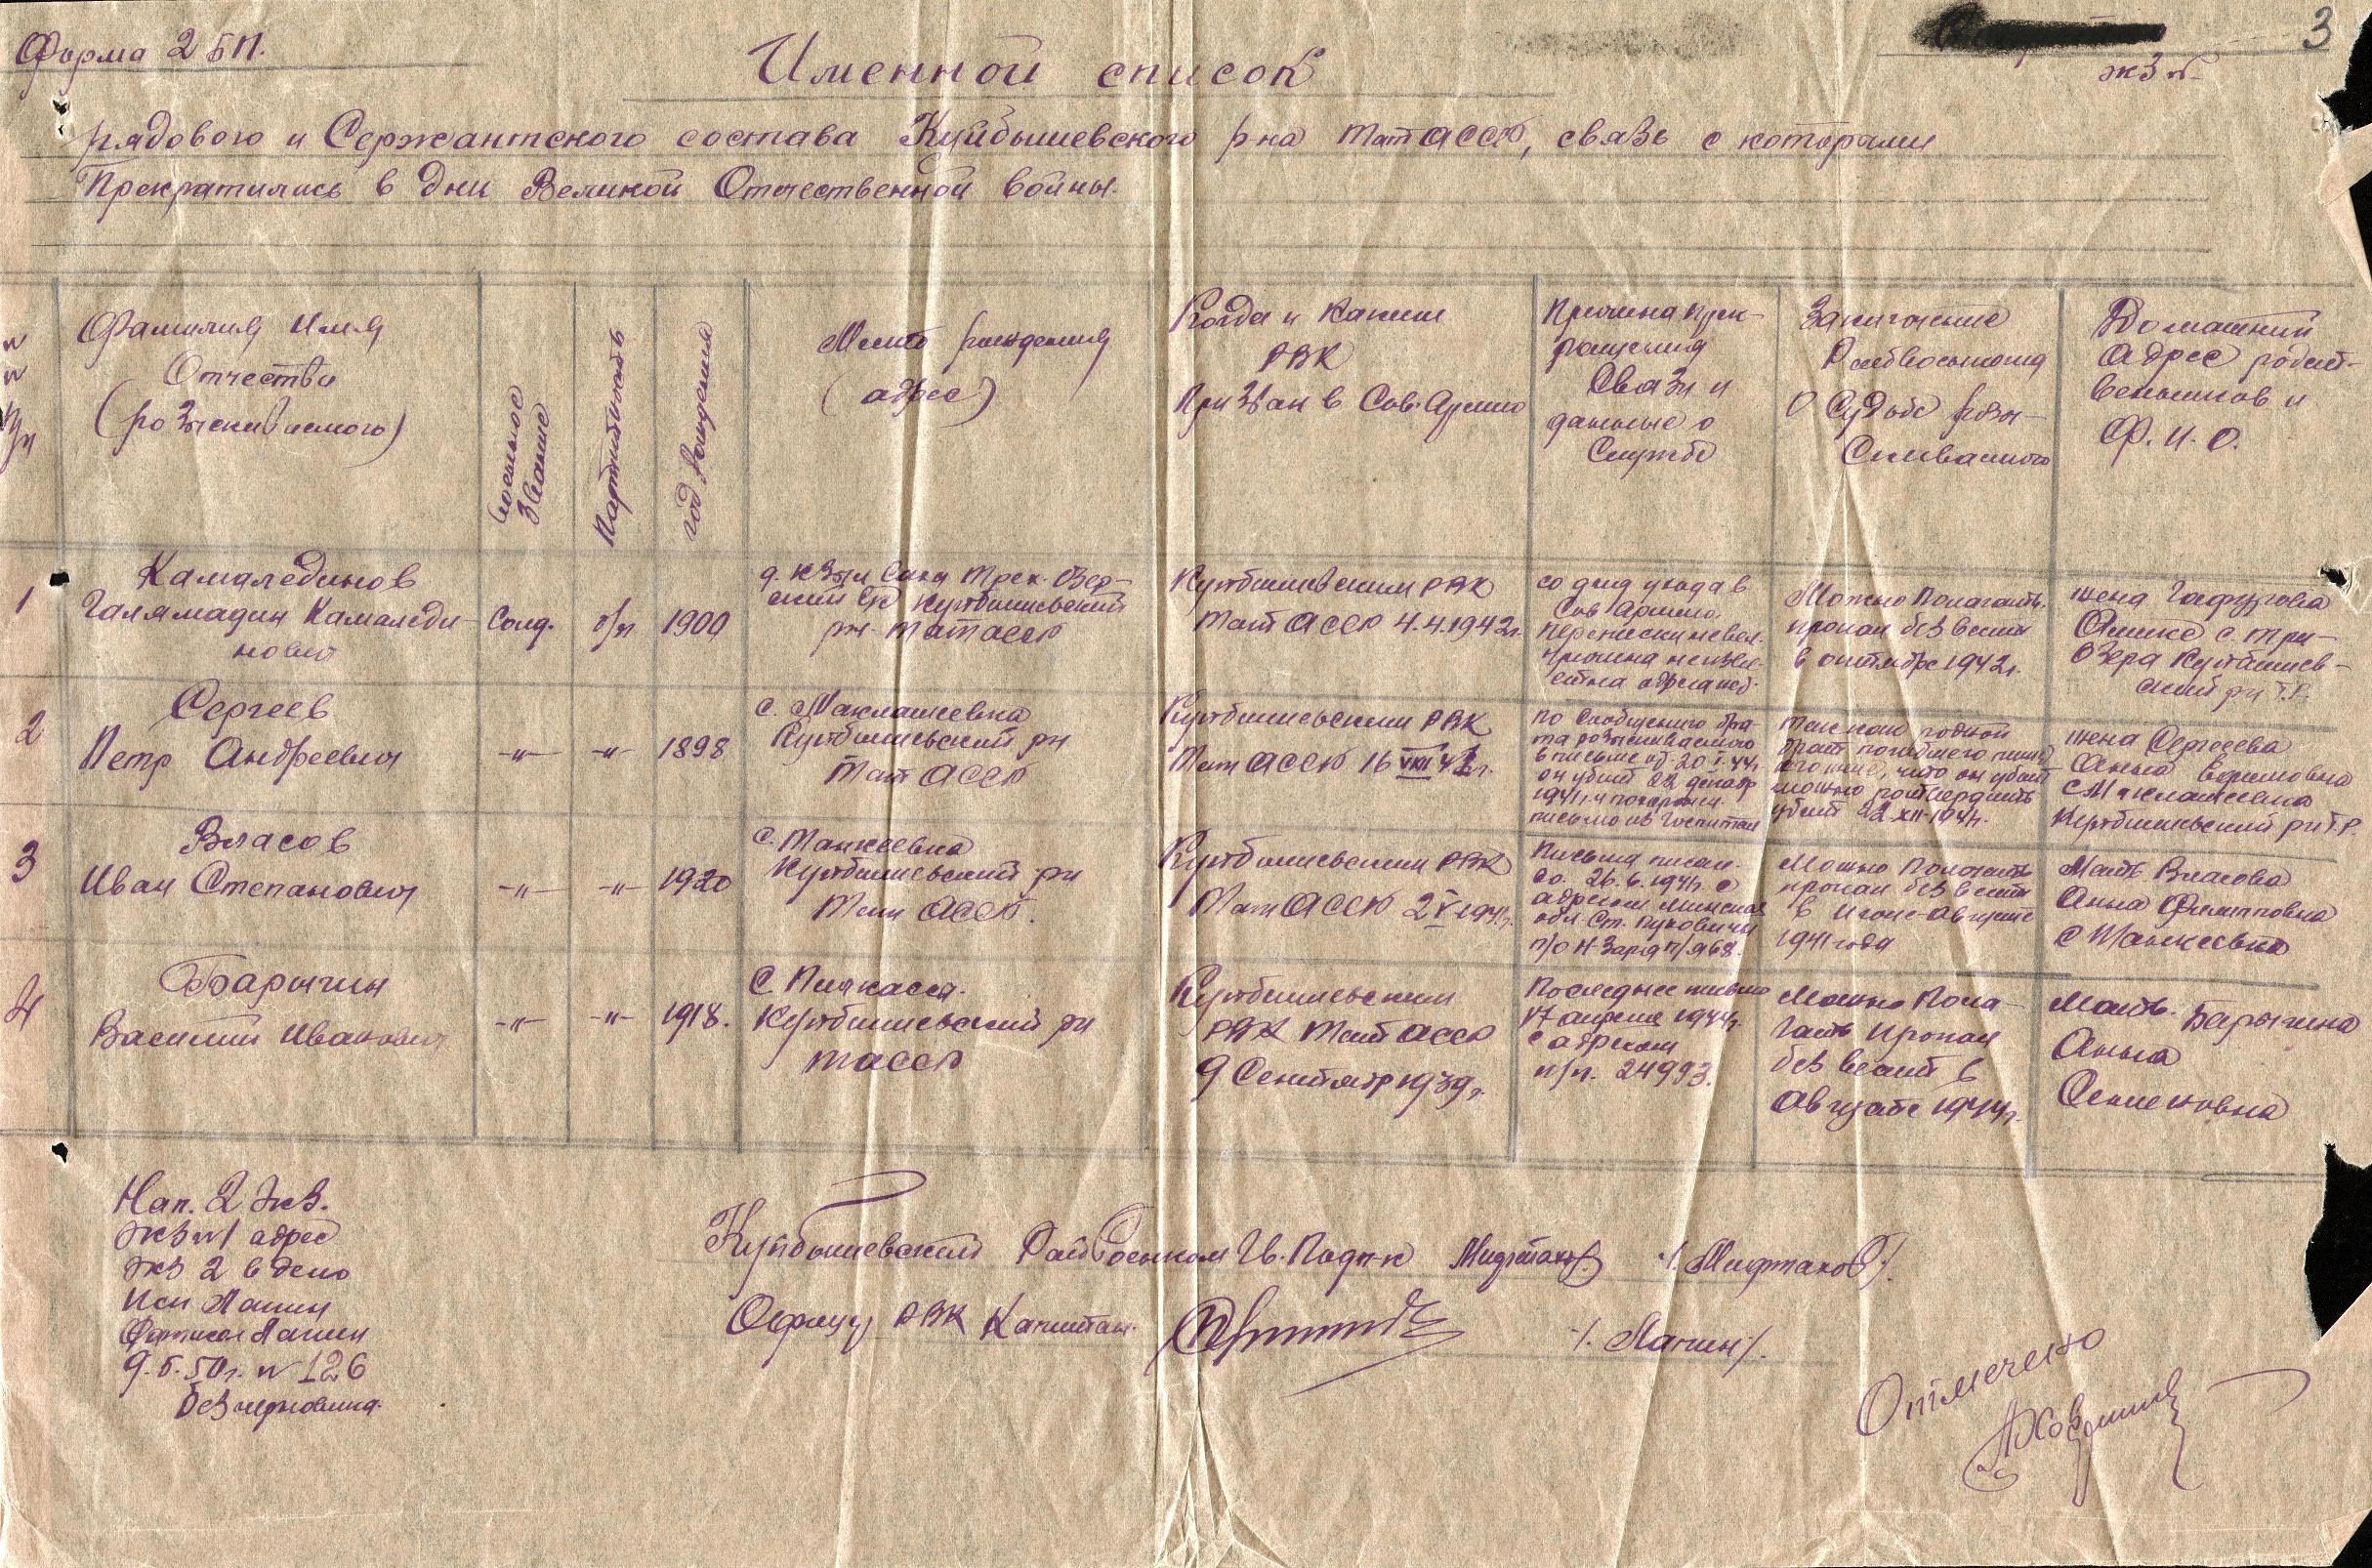 Форма 2 БП.
3
экз №
Именной список
рядового и Сержантского состава Куйбышевского р-на ТатАССР, связь с которыми
Прекратились в дни Великой Отечественной войны.
№
№
п/п
Фамилия Имя
Отчество
(розыскиваемого)
Военное
Звание
Партийность
год рождения
Место рождения
(адрес)
Когда и каким
РВК
Призван в Сов. Армию
Причина прек-
ращения
Связи и
данные о
Службе
Заключение
Райвоенкома
о Судьбе розы-
скиваемого
Домашний
Адрес родст-
венников и
Ф. И. О.
1
Камалединов
Галямадин Камаледи-
нович
Солд.
б/п
1900
д. Кзыл Сака Трех-Озер-
ский с/с Куйбышевский
рн. ТатАССР
Куйбышевским РВК
ТатАССР 4.4.1942г.
со дня ухода в
Сов Армию,
переписки невел.
причина неизве-
стна
Можно Полагать
пропал без вести
в октябре 1942г.
жена Гафурова
с. Три-
Озера Куйбышев-
ский рн Т.Р.
2
Сергеев
Петр Андреевич
-"-
-"-
1898
с. Маклашеевка
Куйбышевский рн
ТатАССР
Куйбышевским РВК
ТатАССР 16 VIII 41г.
по Сообщению бра-
та розыскиваемого
в письме от 20.I.44г.
он убит 22 декабр
1941г. и похоронен.
письмо из Госпиталя
так как родной
брат погибшего пишет
что он убит
можно подтвердить
убит 22-XII-1941г.
жена Сергеева
Анна Ефимовна
с Маклашеевка
Куйбышевский рн Т.Р.
3
Власов
Иван Степанович
-"-
-"-
1920
с. Танкеевка
Куйбышевский рн
Тат АССР.
Куйбышевским РВК
ТатАССР 2 V 1941г.
Письма писал.
до. 26.6.1941г. с
адресом Минская
обл. Ст. Пуховичи
п/о Н-Заря п/я 68.
Можно Полагать
пропал без вести
в Июле-Августе
1941 года
Мать Власова
Анна Филипповна
с Танкеевка
4
Барычин
Василий Иванович
-"-
-"-
1918.
С. Пичкасса.
Куйбышевский рн
ТАССР
Куйбышевским
РВК ТатАССР
9 Сентябр 1939г.
Последнее письмо
17 апреля 1944г.
с адресом
п/п. 24993.
Можно Пола-
гать Пропал
без вести в
Августе 1944г.
Мать. Барычина
Анна
Семеновна
Нап. 2 экз.
экз №1 адрес
экз 2 в дело
исп Лапин
Лапин
9.5.50г. № 126
без черновика.
Куйбышевский Райвоенком Гв. Подп-к Мифтахов /. Мифтахов /.
Офицер РВК Капитан. /. Лапин /.
Отмечено